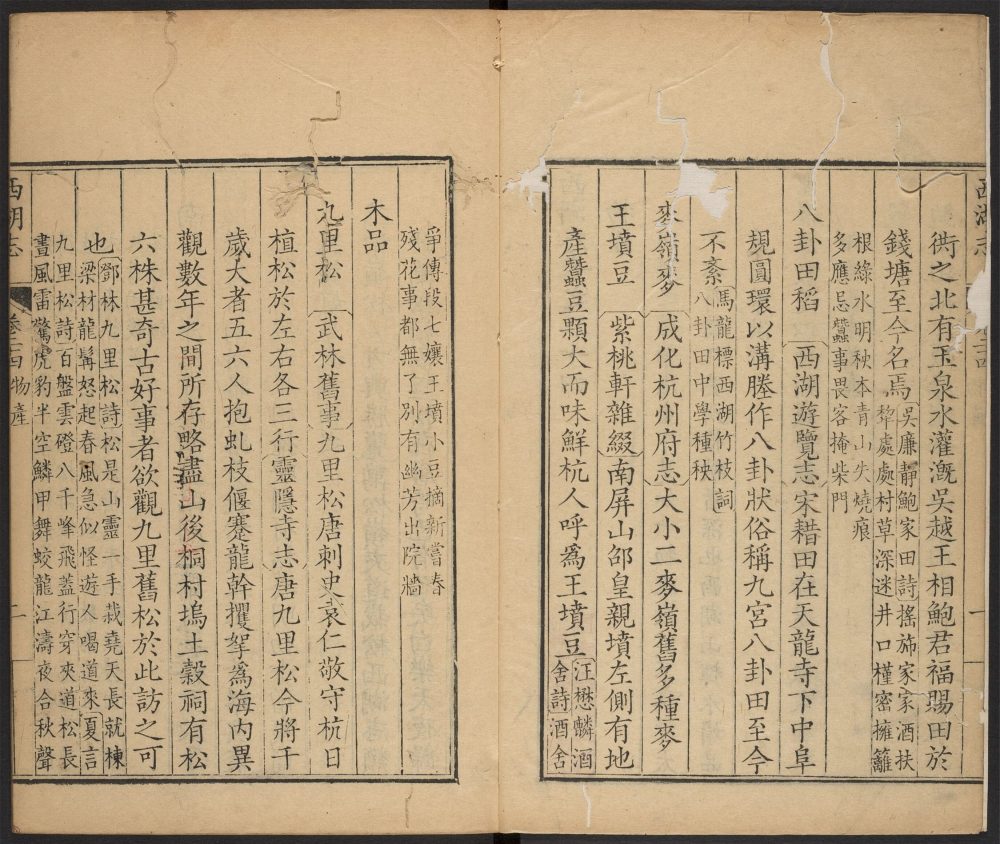 衖之北有玉泉水灌漑吳越王相鮑君福賜田於
錢塘至今名焉吳廉靜鮑家田詩搖斾家家酒扶
犂處處村草深迷井口槿密擁籬
根綠水明秧本青山失燒痕
多應忌蠶事畏客掩柴門
八卦田稻　西湖遊覽志宋耤田在天龍寺下中阜
規圓環以溝塍作八卦狀俗稱九宮八卦田至今
不紊馬龍標西湖竹枝詞
八卦田中學種秧
麥嶺麥　成化杭州府志大小二麥嶺舊多種麥
王墳豆　紫桃軒雜綴南屏山邵皇親墳左側有地
產蠶豆顆大而味鮮杭人呼爲王墳豆汪懋麟酒
舍詩酒舍
爭傳段七孃王墳小豆摘新嘗春
殘花事都無了別有幽芳出院牆
木品
九里松　武林舊事九里松唐刺史袁仁敬守杭日
植松於左右各三行靈隱寺志唐九里松今將千
歲大者五六人抱虬枝偃蹇龍幹攫拏爲海内異
觀數年之間所存略盡山後桐村塢土穀祠有松
六株甚奇古好事者欲觀九里舊松於此訪之可
也鄧林九里松詩松是山靈一手栽堯天長就棟
梁材龍髯怒起春風急似怪遊人喝道來夏言
九里松詩百盤雲磴八千峰飛蓋行穿夾道松長
晝風雷驚虎豹半空鱗甲舞蛟龍江濤夜合秋聲
西湖志　卷二十四物產　二